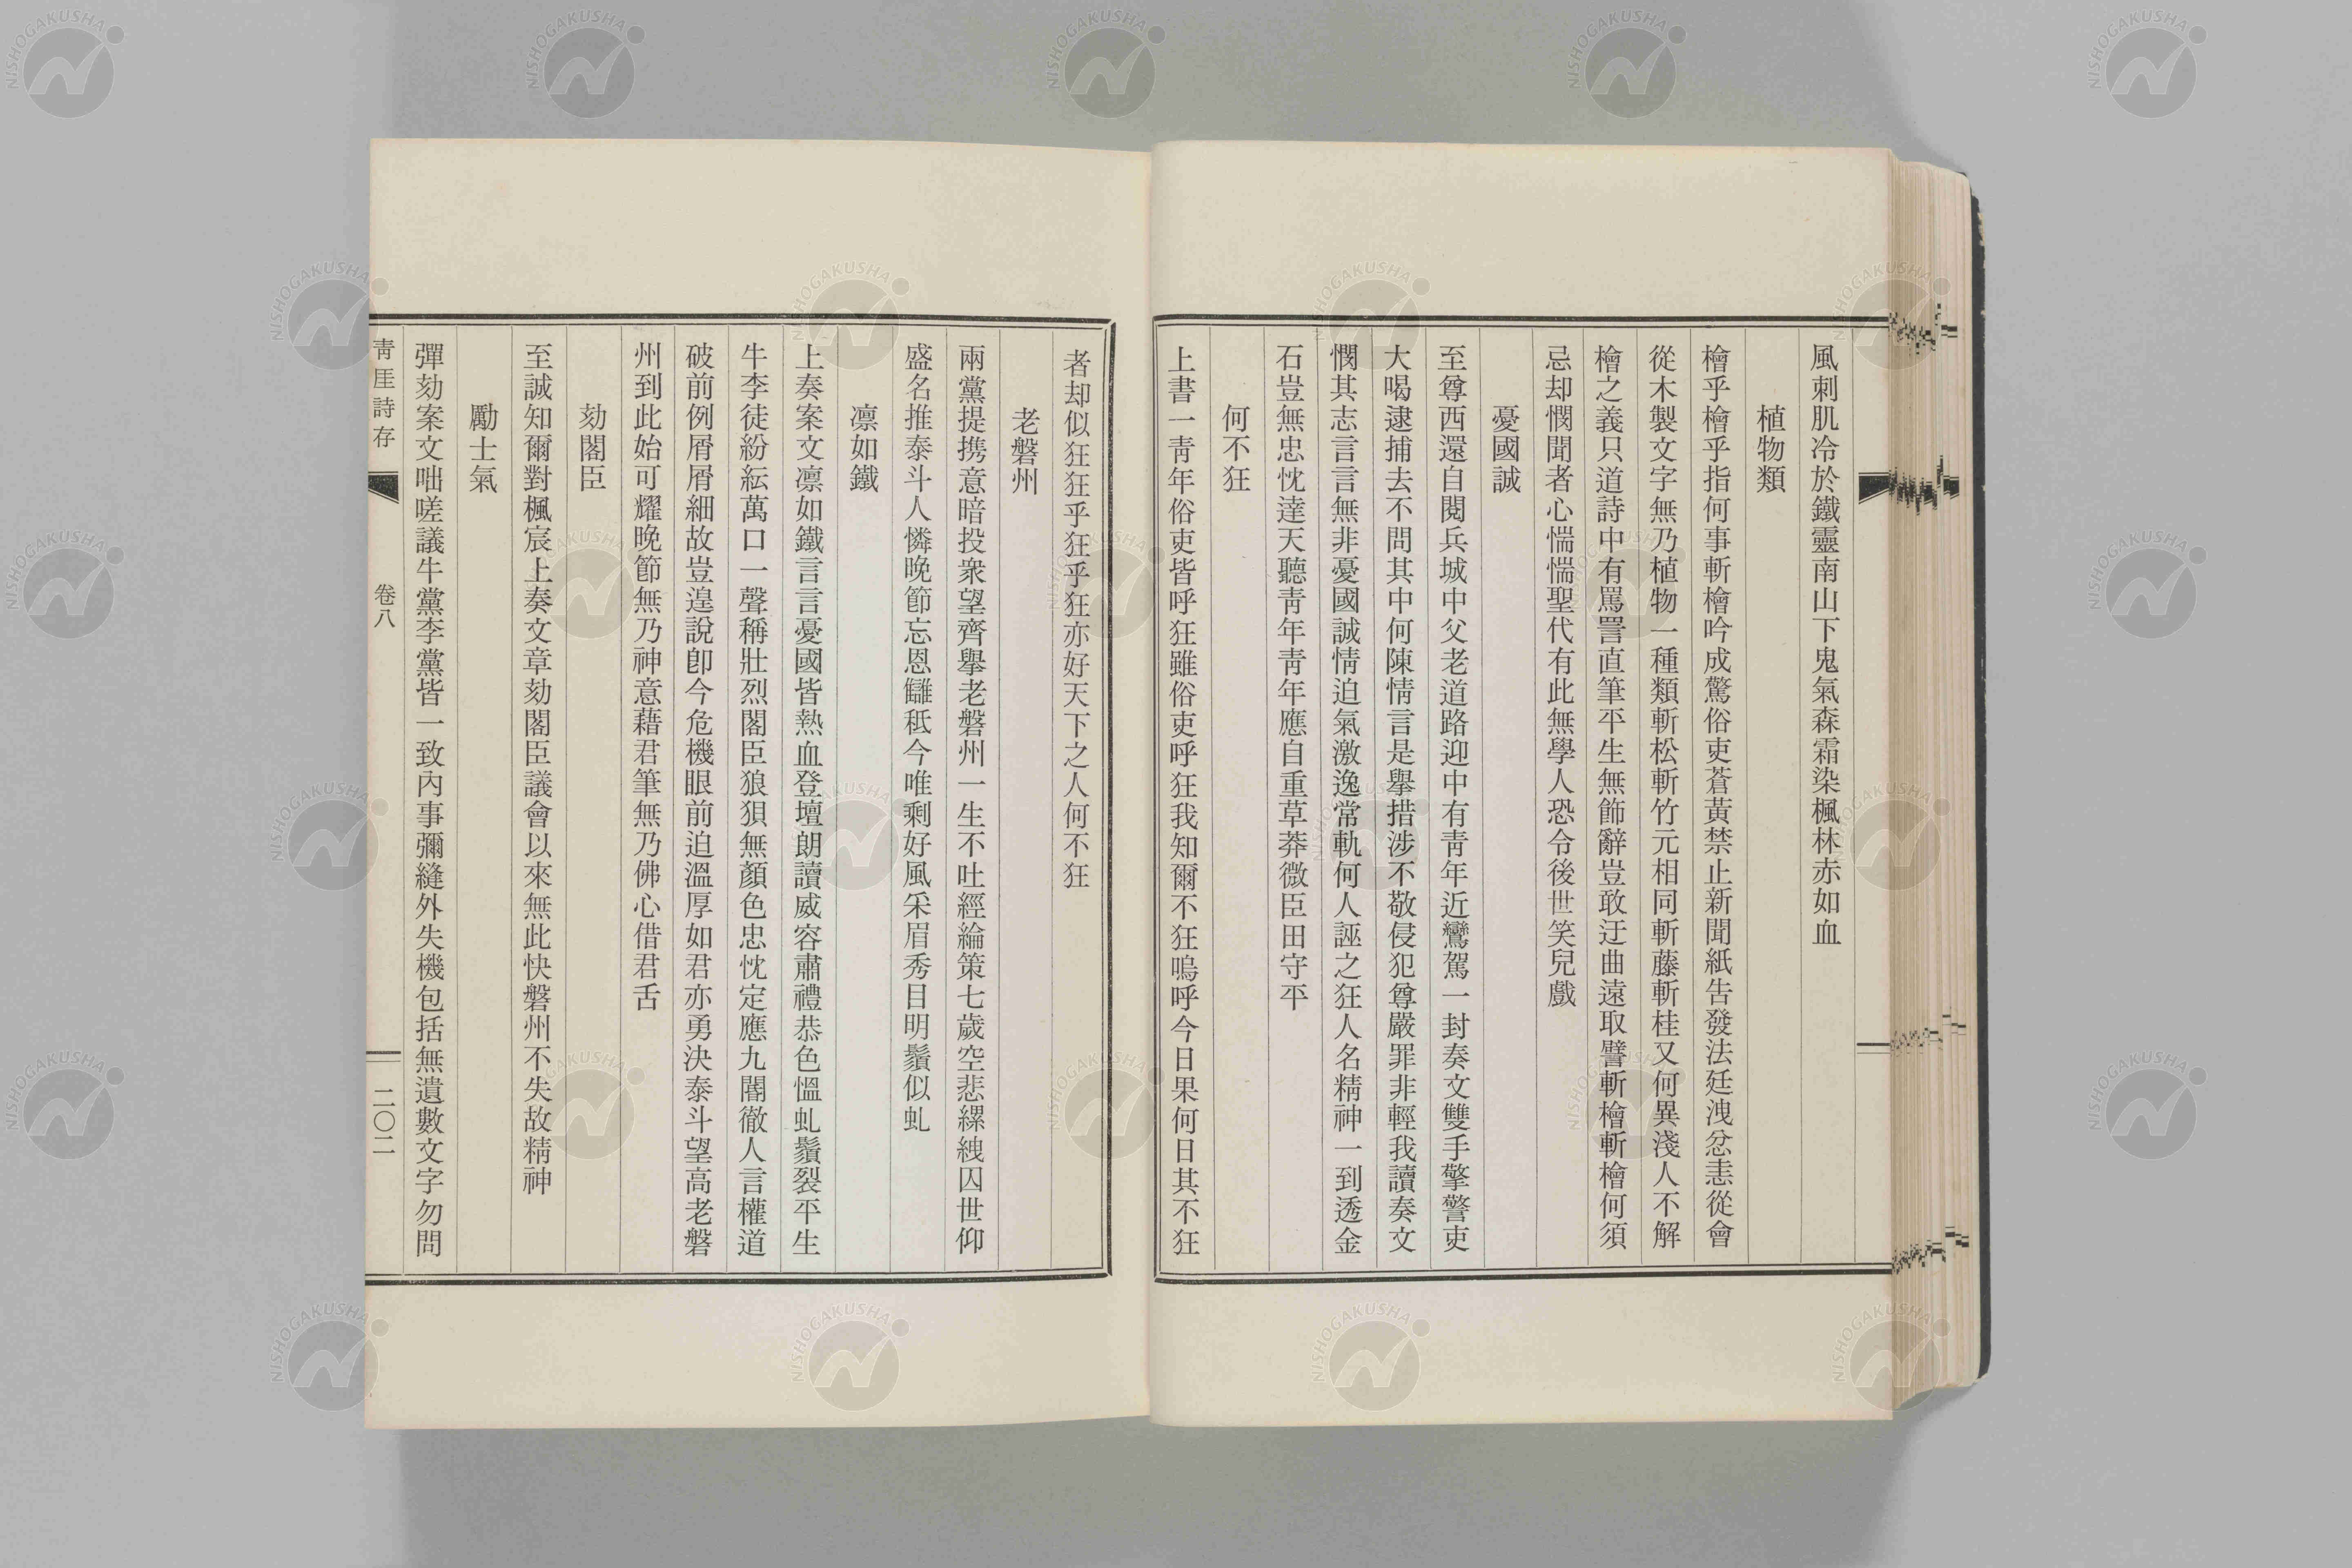 風刺肌冷於鐵靈南山下鬼氣森霜染楓林赤如血
植物類
檜乎檜乎指何事斬檜吟成驚俗吏蒼黃禁止新聞紙告發法廷洩忿恚從會
從木製文字無乃植物一種類斬松斬竹元相同斬藤斬桂又何異淺人不解
檜之義只道詩中有罵詈直筆平生無飾辭豈敢迂曲遠取譬斬檜斬檜何須
忌却憫聞者心惴惴聖代有此無學人恐令後世笑兒戲
憂國誠
至尊西還自閱兵城中父老道路迎中有靑年近鸞駕一封奏文雙手擎警吏
大喝逮捕去不問其中何陳情言是擧措涉不敬侵犯尊嚴罪非輕我讀奏文
憫其志言言無非憂國誠情迫氣激逸常軌何人誣之狂人名精神一到透金
石豈無忠忱達天聽靑年靑年應自重草莽微臣田守平
何不狂
上書一靑年俗吏皆呼狂雖俗吏呼狂我知爾不狂嗚呼今日果何日其不狂
者却似狂狂乎狂乎狂亦好天下之人何不狂
老磐州
兩黨提携意暗投衆望齊擧老磐州一生不吐經綸策七歲空悲縲絏囚世仰
盛名推泰斗人憐晚節忘恩讎秪今唯剩好風采眉秀目明鬚似虬
凛如鐵
上奏案文凛如鐵言言憂國皆熱血登壇朗讀威容肅禮恭色慍虬鬚裂平生
牛李徒紛紜萬口一聲稱壯烈閣臣狼狽無顏色忠忱定應九閽徹人言權道
破前例屑屑細故豈遑說卽今危機眼前迫溫厚如君亦勇決泰斗望高老磐
州到此始可耀晚節無乃神意藉君筆無乃佛心借君舌
劾閣臣
至誠知爾對楓宸上奏文章劾閣臣議會以來無此快磐州不失故精神
勵士氣
彈劾案文咄嗟議牛黨李黨皆一致內事彌縫外失機包括無遺數文字勿問
靑厓詩存
卷八
二〇二
NISHOGAKUSHA